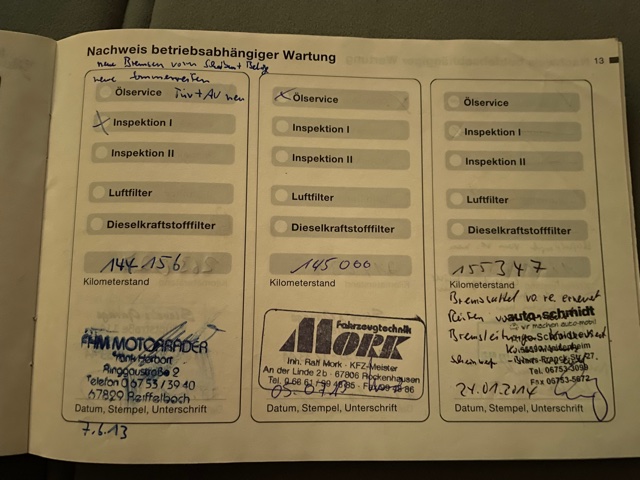 Nachweis betriebsabhängiger Wartung
13
neue Bremsen vorn Scheiben + Beläge
neue Sommerreifen
Ölservice Tüv + AU neu
X Inspektion I
Inspektion II
Luftfilter
Dieselkraftstofffilter
144 156
Kilometerstand
HM MOTORRÄDER
Frank Herbort
Ringgaustraße 2
Telefon 0 67 53 / 39 40
67829 Reiffelbach
Datum, Stempel, Unterschrift
7.6.13
X Ölservice
Inspektion I
Inspektion II
Luftfilter
Dieselkraftstofffilter
145 000
Kilometerstand
Fahrzeugtechnik
MORK
Inh. Ralf Mork - KFZ-Meister
An der Linde 2b - 67806 Rockenhausen
Datum, Stempel, Unterschrift
Ölservice
Inspektion I
Inspektion II
Luftfilter
Dieselkraftstofffilter
155 347
Kilometerstand
Bremssattel vo re erneuert
Reifen
auto-schmidt
wir machen auto-mobil
Auto-Schmidt
Tel. 06753-3099
Fax 06753-5672
24.01.2014
Datum, Stempel, Unterschrift